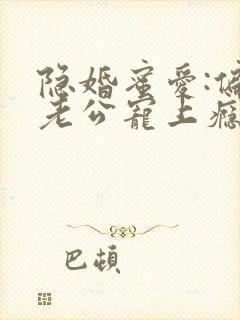 隐婚蜜爱:偏
老公宠上瘾
巴顿